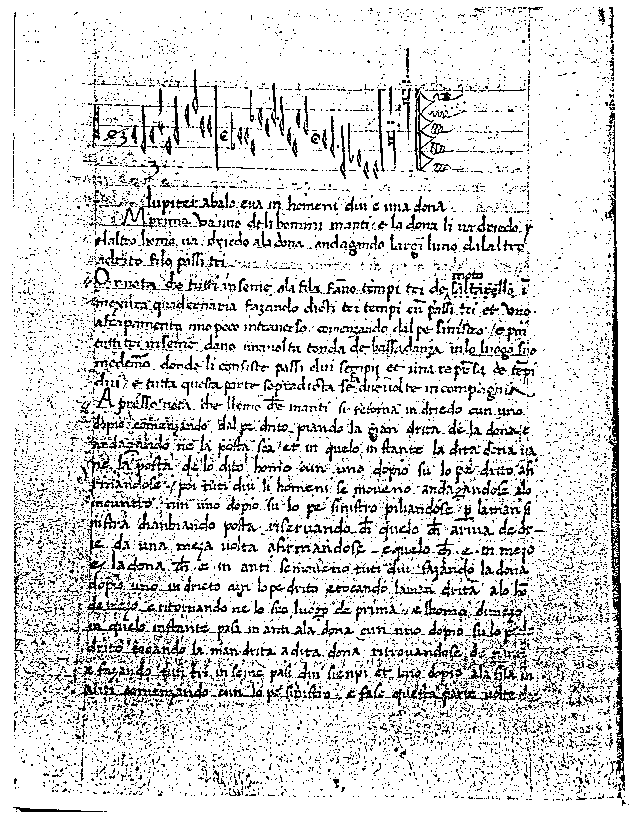 Iupiter abalo era in homeni dui e una dona
In prima va uno deli homini manti e la dona li va driedo y
elaltro homo va driedo ala dona andagando largi luno dalaltro
adrito filo passi tri
Or nota che tussi inseme ala fila fano tempi tri de saltarello i
moto
mexura quadernaria fazando dicti tri tempi cū passi tri et uno
comenzando dal pe sinistro e poi
tutti tri inseme dano una volta tonda de bassadanza in lo luogo suo
medemo donde li consiste passi dui sempii et una represa de tempi
dui e tutta questa parte se due volte in compagnia
Apresso nota che lhomo de manti si retorna in driedo cun uno
dopio comenzando dal pe drito piando la man drita de la dona e
ne la posta soa et in quelo instante la dita dona va
ne la posta de lo dito homo cun uno dopio su lo pe drito
poi tuti dui li homeni se moveno andagandose alo
incuntro cun uno dopio su lo pe sinistro piliandose p la man si
nistra chanbiando posta riservando ch quelo ch ariva de dr
e da una meza volta afirmandose e quelo ch e in mezo
e la dona ch e in anti se moveno tuti dui fazando la dona
dopio uno in drieto cun lo pe drito e tocando la man drita alo ho
de mezo e ritornando ne lo seo luogo de prima e lhomo di mezo
in quelo instante pasa in anti ala dona cun uno dopio su lo pe
drito tocando la man drita a dita dona ritrovandose de
e fazando tuti tri inseme pasi dui sienpi et uno dopio ala fila in
anti comenzando cun lo pe sinistro e fase questa parte volte